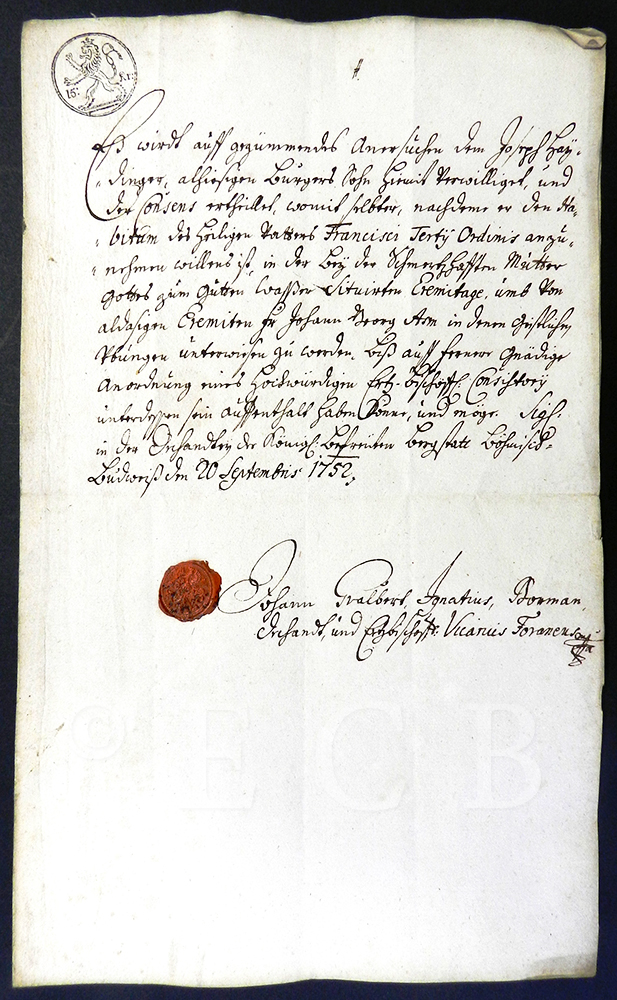 15: Kr:
Es wirdt auff gezimmendes Anersuchen dem Joseph Hay-
-dinger, alhiesigen Burgers Sohn hiemit Verwilliget, und
der Consens ertheillet, womit selbter, nachdeme er den Ha-
-bitum des Heiligen Vatters Francisci Tertÿ Ordinis anzu-
-nehmen willens ist, in der beÿ der Schmertzhafften Mutter
Gottes zum Gutten Wasser Situirten Eremitage, umb von
aldasigen Eremiten Fr Johann Georg in denen Geistlichen
Ubungen unterwiesen zu werden, biß auff fernere Gnädige
Anordnung eines Hochwürdigen Ertz-bischoffl: Consistorÿ
unterdessen sein auffenthalt haben Könne, und möge. Sigl:
in der Dechandteÿ der Königl: Befreiten Bergstatt Böhmisch-
Budweiß den 20 Septembris 1752,
Johann Ignatius, Borman,
Dechandt, und Ertzbischoffl: Vicarius Foraneus
© ECB